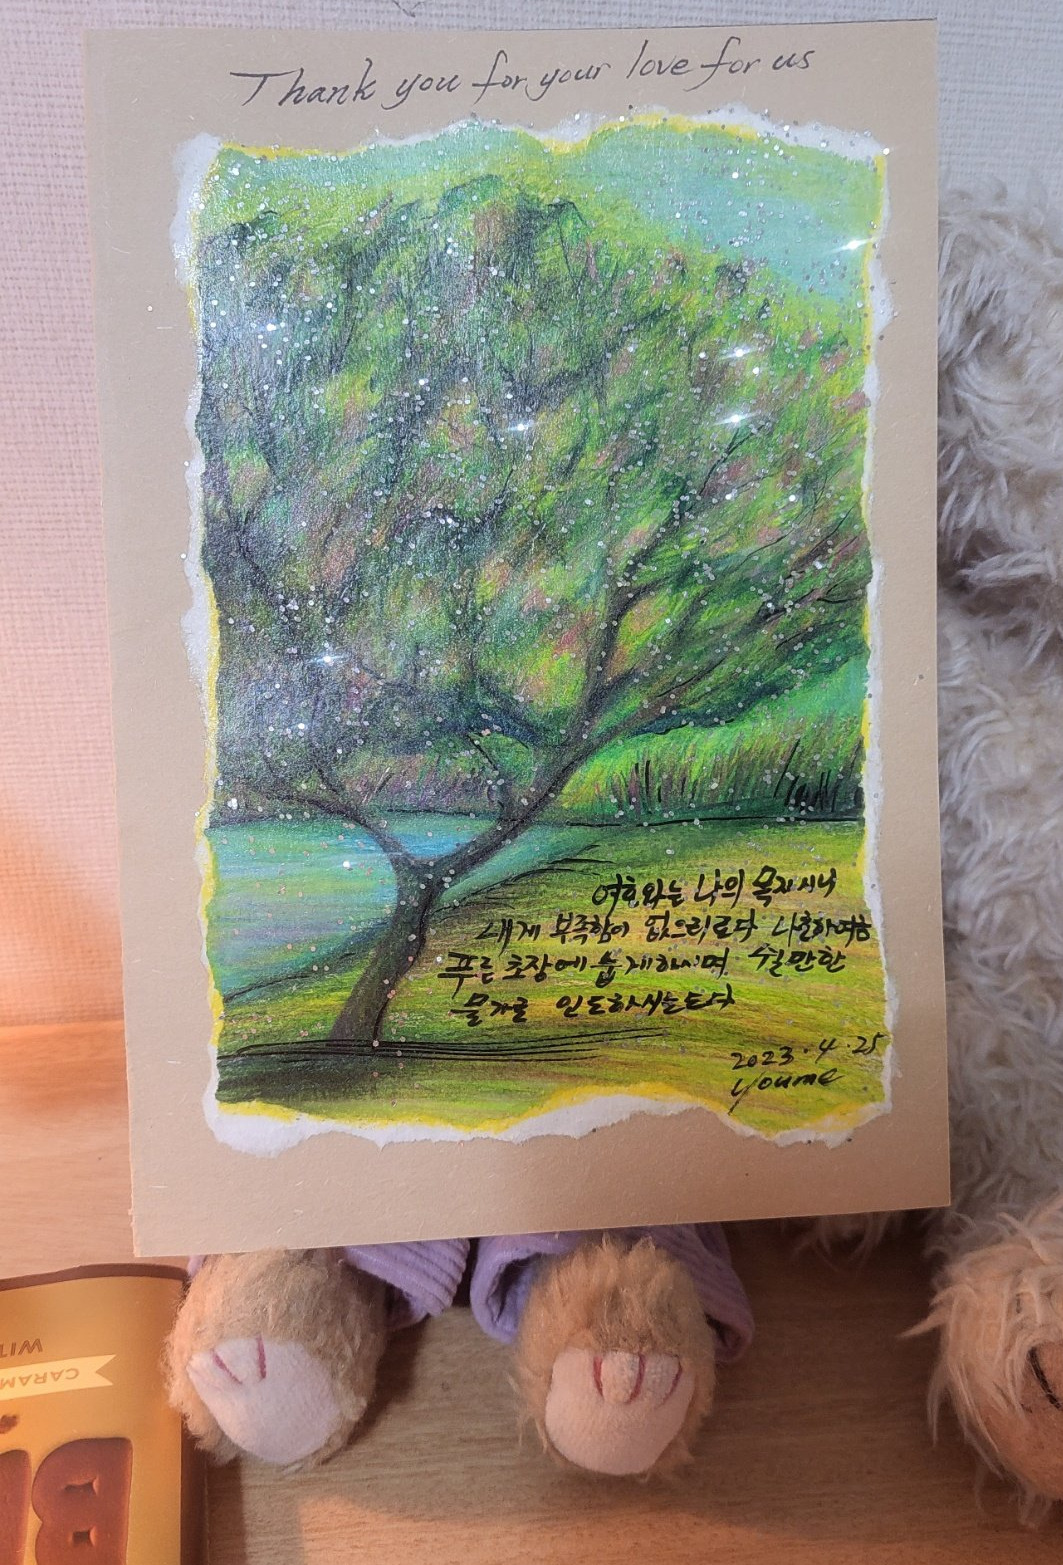 Thank you for your love for us
여호와는 나의 목자시니
내게 부족함이 없으리로다
푸른 초장에 눕게하시며 쉴만한
물가로 인도하시는도다
2023.4.25
youme
WIT
CARAM
B